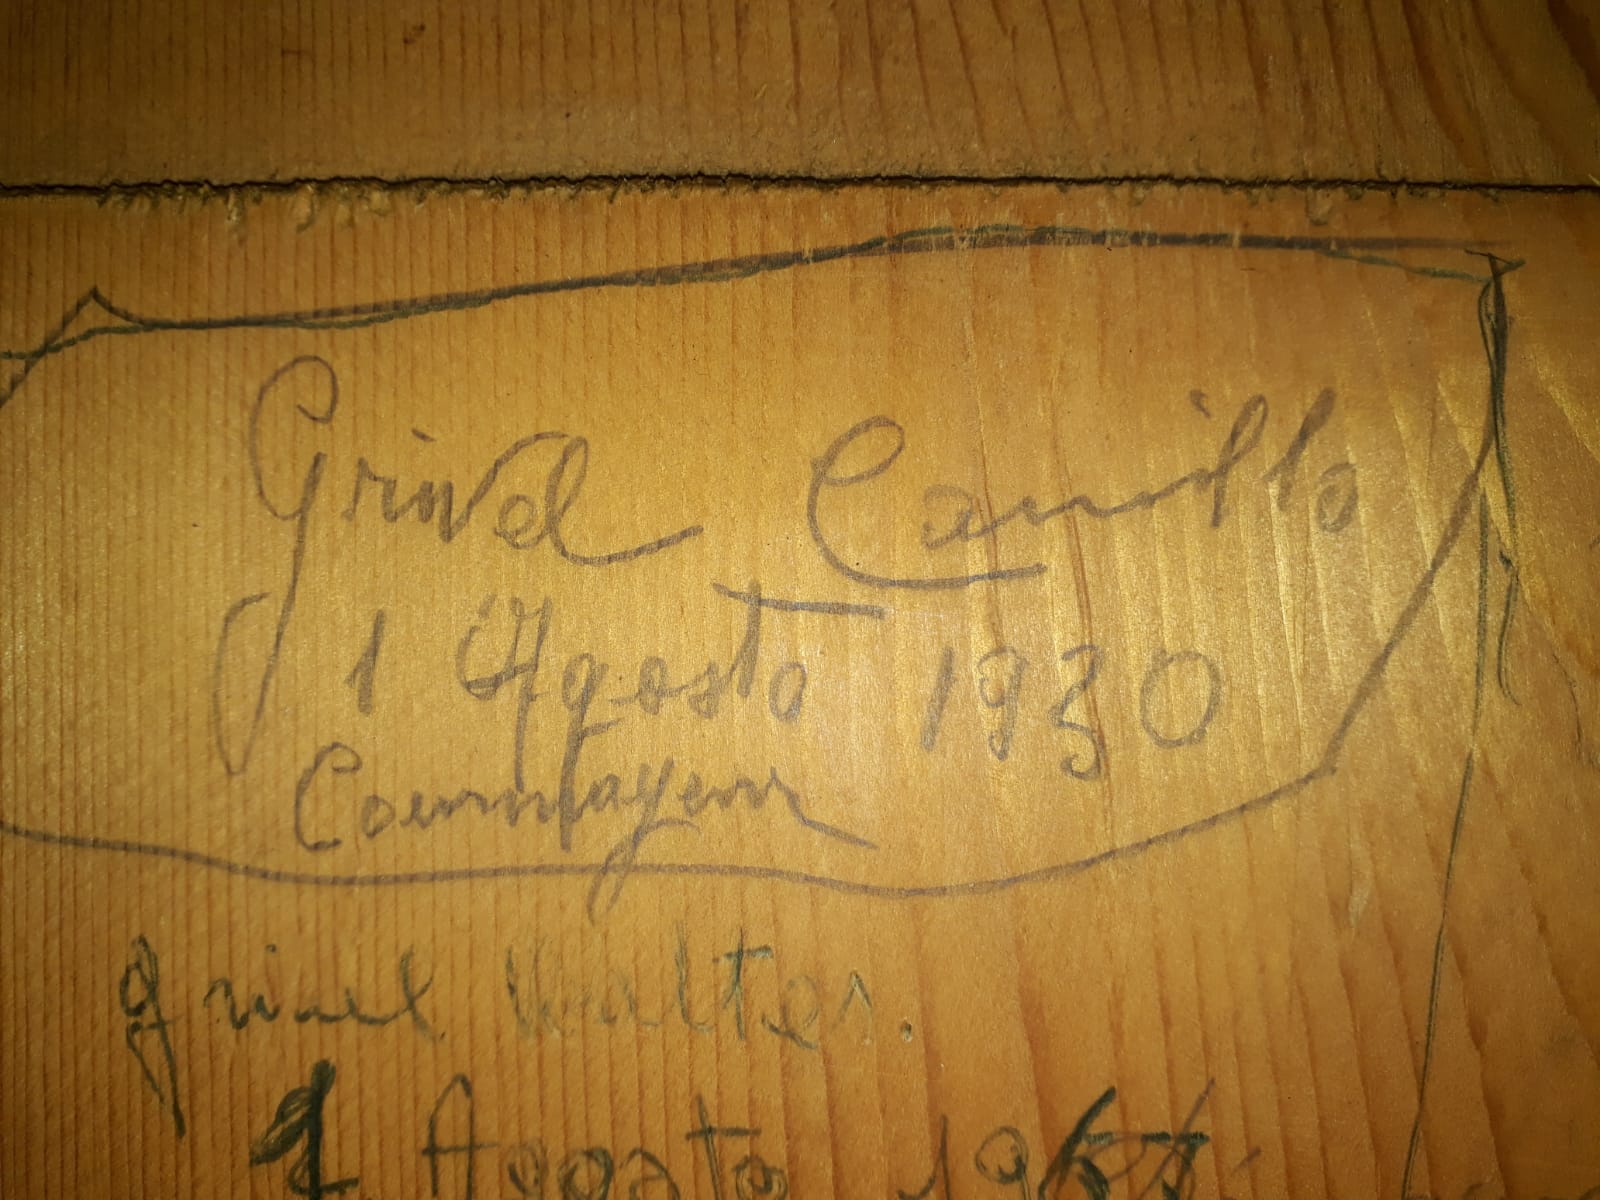 Grivel Camillo
1 Agosto 1930
Courmayeur
grivel Walter.
1 Agosto